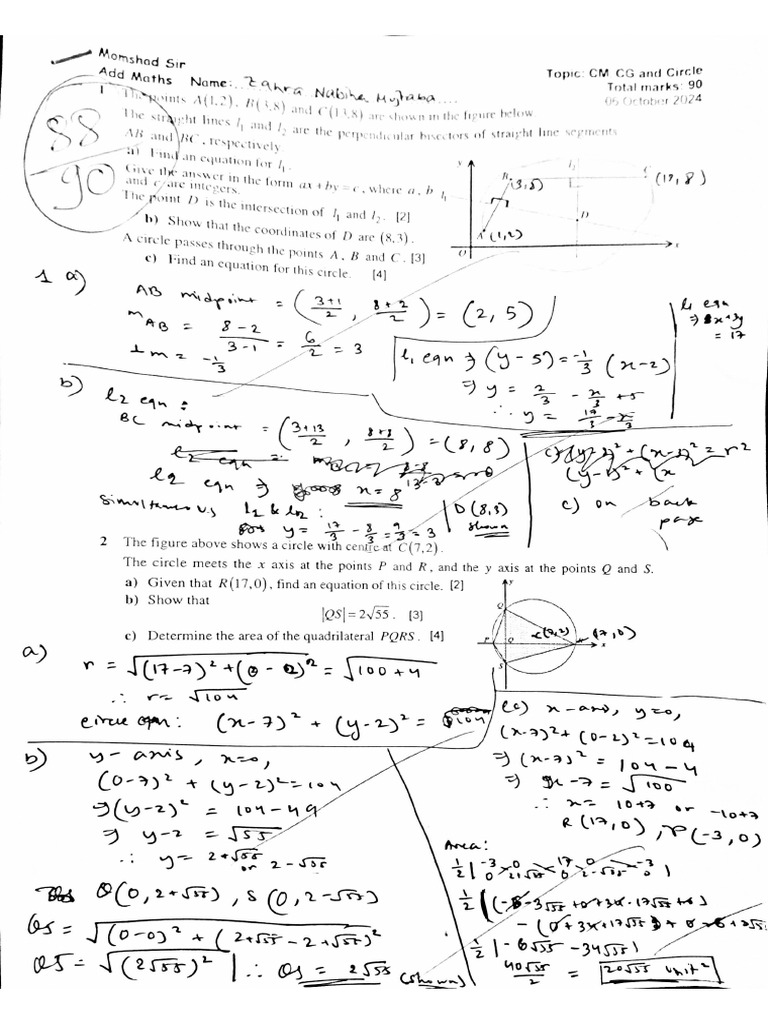 Momshad Sir
Add Maths Name:.. Zahra Nabiha Mujtaba....
Topic: CM CG and Circle
Total marks: 90
05 October 2024
88
90
1 The points A(1,2), B(3,8) and C(13,8) are shown in the figure below.
The straight lines l₁ and l₂ are the perpendicular bisectors of straight line segments
AB and BC, respectively.
a) Find an equation for l₁.
Give the answer in the form ax+by=c, where a, b
and c are integers.
The point D is the intersection of l₁ and l₂. [2]
b) Show that the coordinates of D are (8,3).
A circle passes through the points A, B and C. [3]
c) Find an equation for this circle. [4]
y
l₁
l₁
B
(3,8)
C
(13,8)
D
A (1,2)
O
x
1 a)
AB midpoint = (3+1/2, 8+2/2) = (2, 5)
m AB = 8-2/3-1 = 6/2 = 3
⊥ m = -1/3
l₁ eqn ⇒ (y-5) = -1/3 (x-2)
⇒ y = 2/3 - x/3 +5
∴ y = 17/3 - x/3
l₁ eqn
⇒ x+3y
= 17
b)
l2 eqn :
BC midpoint = (3+13/2, 8+8/2) = (8,8)
l2 eqn =
l2 eqn ⇒ x = 8
Simultaneous l1 & l2 :
y = 17/3 - 8/3 = 9/3 = 3
D (8,3)
shown
c) on back
page
2 The figure above shows a circle with centre at C(7,2).
The circle meets the x axis at the points P and R, and the y axis at the points Q and S.
a) Given that R(17,0), find an equation of this circle. [2]
b) Show that
|QS| = 2√55. [3]
c) Determine the area of the quadrilateral PQRS. [4]
y
Q
P
O
C(7,2)
R (17,0)
x
S
a)
r = √(17-7)² + (0-2)² = √100+4
∴ r = √104
circle eqn: (x-7)² + (y-2)² = 104
b) y-axis, x=0,
(0-7)² + (y-2)² = 104
⇒ (y-2)² = 104-49
⇒ y-2 = √55
∴ y = 2+√55 or 2-√55
Q(0, 2+√55), S(0, 2-√55)
QS = √(0-0)² + (2+√55-2+√55)²
QS = √(2√55)² | ∴ QS = 2√55 (shown)
c) x-axis, y=0,
(x-7)² + (0-2)² = 104
⇒ (x-7)² = 104-4
⇒ x-7 = √100
∴ x = 10+7 or -10+7
R(17,0), P(-3,0)
Area:
1/2 | -3 0 17 0 -3
0 2+√55 0 2-√55 0 |
1/2 | -6√55 - 34√55 |
40√55/2 = 20√55 unit²